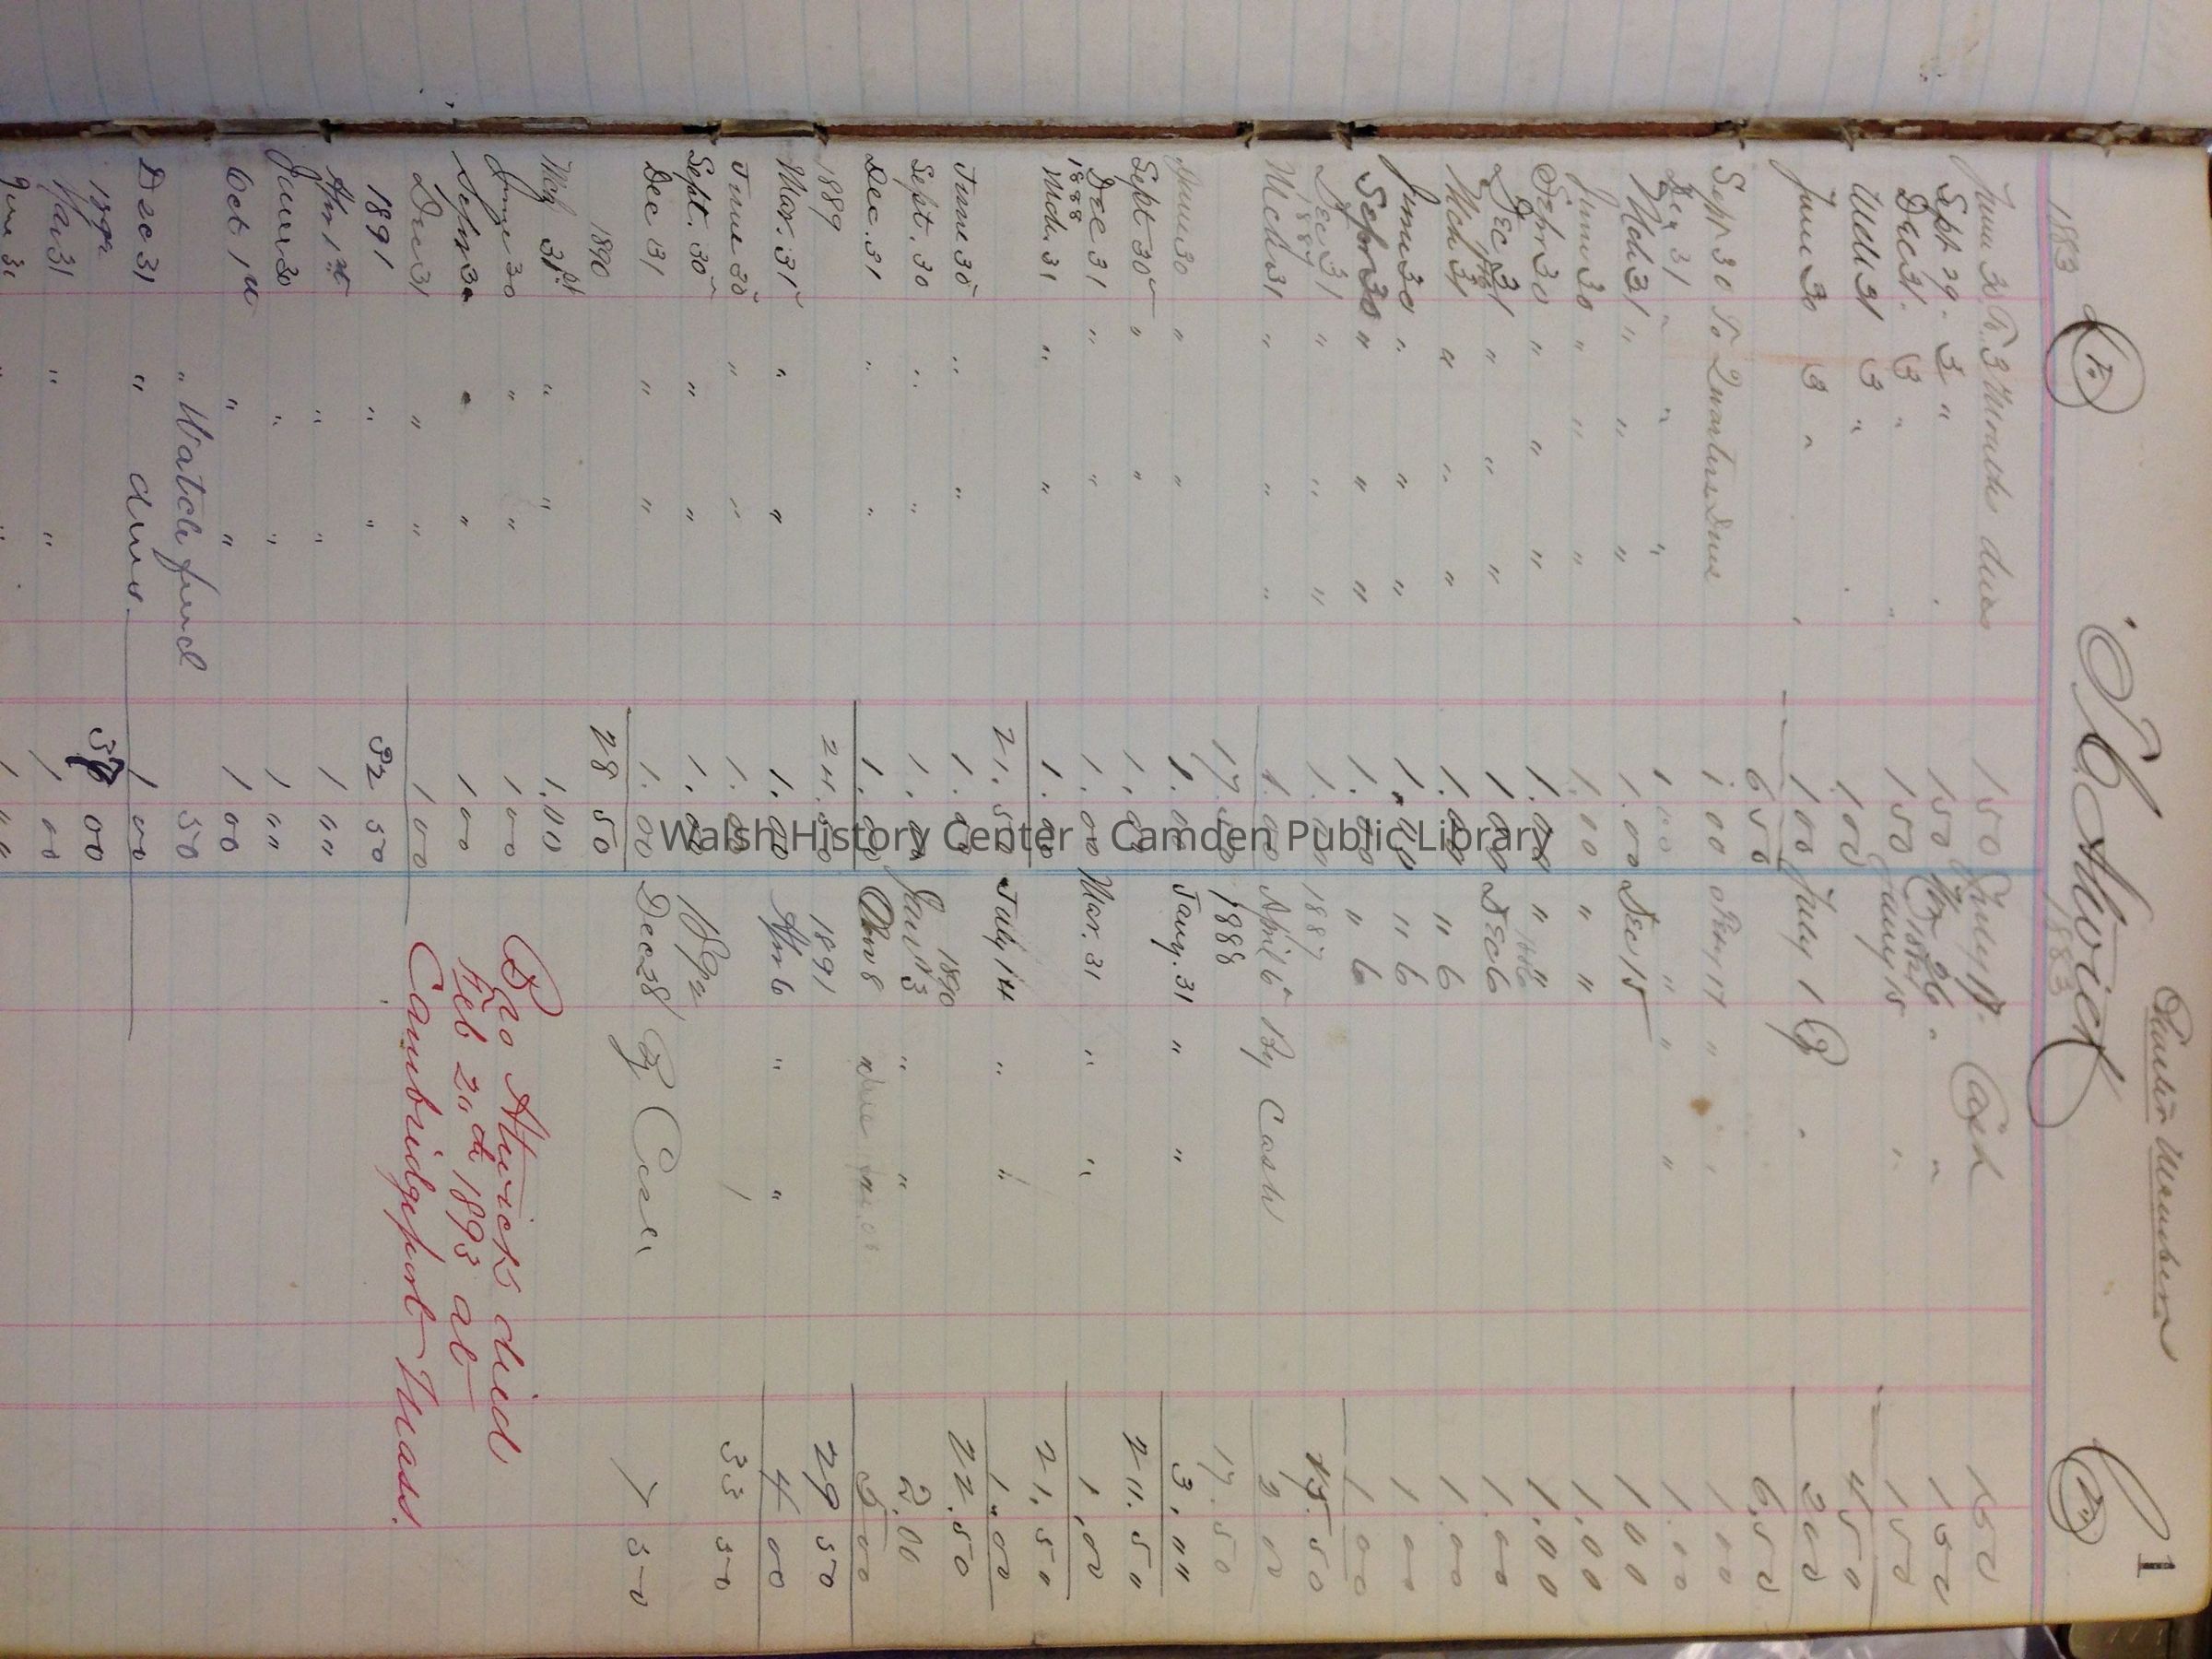 Charter Members
1
Dr. J. C. Atwick Cr.
1883 1883
June 30 To 3 Months dues 1 50 July 17. Cash 1 50
Sept 29. 3 " 1 50 26 " " 1 50
Dec 31. 3 " 1 50 Jany 15 " 1 50
Mch 31 3 " 1.00 4 50
June 30 3 " 1 00 July 19 2 00
6 50 6 50
Sept 30 To Quarters Dues 1.00 " " 1 00
Dec 31 " " " 1 00 " " " 1.00
Mch 31 " " " 1.00 Dec 15 1 00
June 30 " " " 1.00 " " 1,00
Sepr 30 " " " 1.00 " " 1,00
Dec 31 " " " 1 00 Dec 6 1.00
Mch 31 " " " 1.00 " 6 1.00
June 30 " " " 1.00 " 6 1 00
Sepr 30 " " " 1.00 " 6 1 00
Dec 31 " " " 1.00 1887 15.50
1887
Mch 31 " " " 1.00 April 6" By Cash 2 00
17.50 1888 17.50
June 30 " " 1.00 Jany. 31 " " 3,00
Sept 30 " " 1,00 20.50
Dec 31 " " 1.00 Mar. 31 " " 1,00
1888
Mch. 31 " " 1.00 21,50
21.50 July 14 " " 1.00
June 30 " " 1.00 1890 22.50
Sept. 30 " " 1.00 Jan 13 " " 2.00
Dec. 31 " " 1.00 8 " 5 00
1889 24.50 1891 29 50
Mar. 31 " " 1.00 Apr 6 " " 4 00
June 30 " " 1.00 33 50
Sept. 30 " " 1.00 1892
Dec 31 " " 1.00 Dec 28 By Cash 7 50
1890 28 50
Mch 31st " " 1.00
June 30 " " 1 00 Bro Atwick died
Sepr 30 " " 1 00 Feb 2nd 1893 at
Dec 31 " " 1 00 Cambridgeport Mass.
1891 " " 32 50
Apr 1st " " 1 00
June 30 " " 1 00
Oct 1st " " 1 00
" Watch fund 50
Dec 31 " dues 1 00
1892 00
Mar 31 " " 1, 00
June 30 " " 1 00
Walsh History Center - Camden Public Library